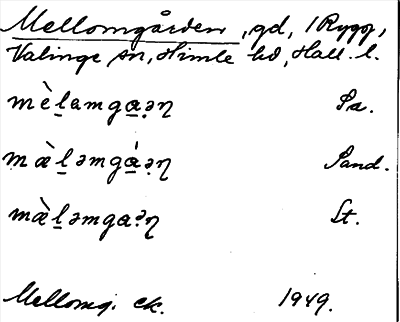 Mellomgården, gd, 1 Rygg,
Valinge sn, Himle hd, Hall. l.
mè̱lamga̱ən Sa.
mæ̀ḻəmgá̱ən Sand.
mæ̀ḻəmgaən St.
Mellomg. ek. 1949.